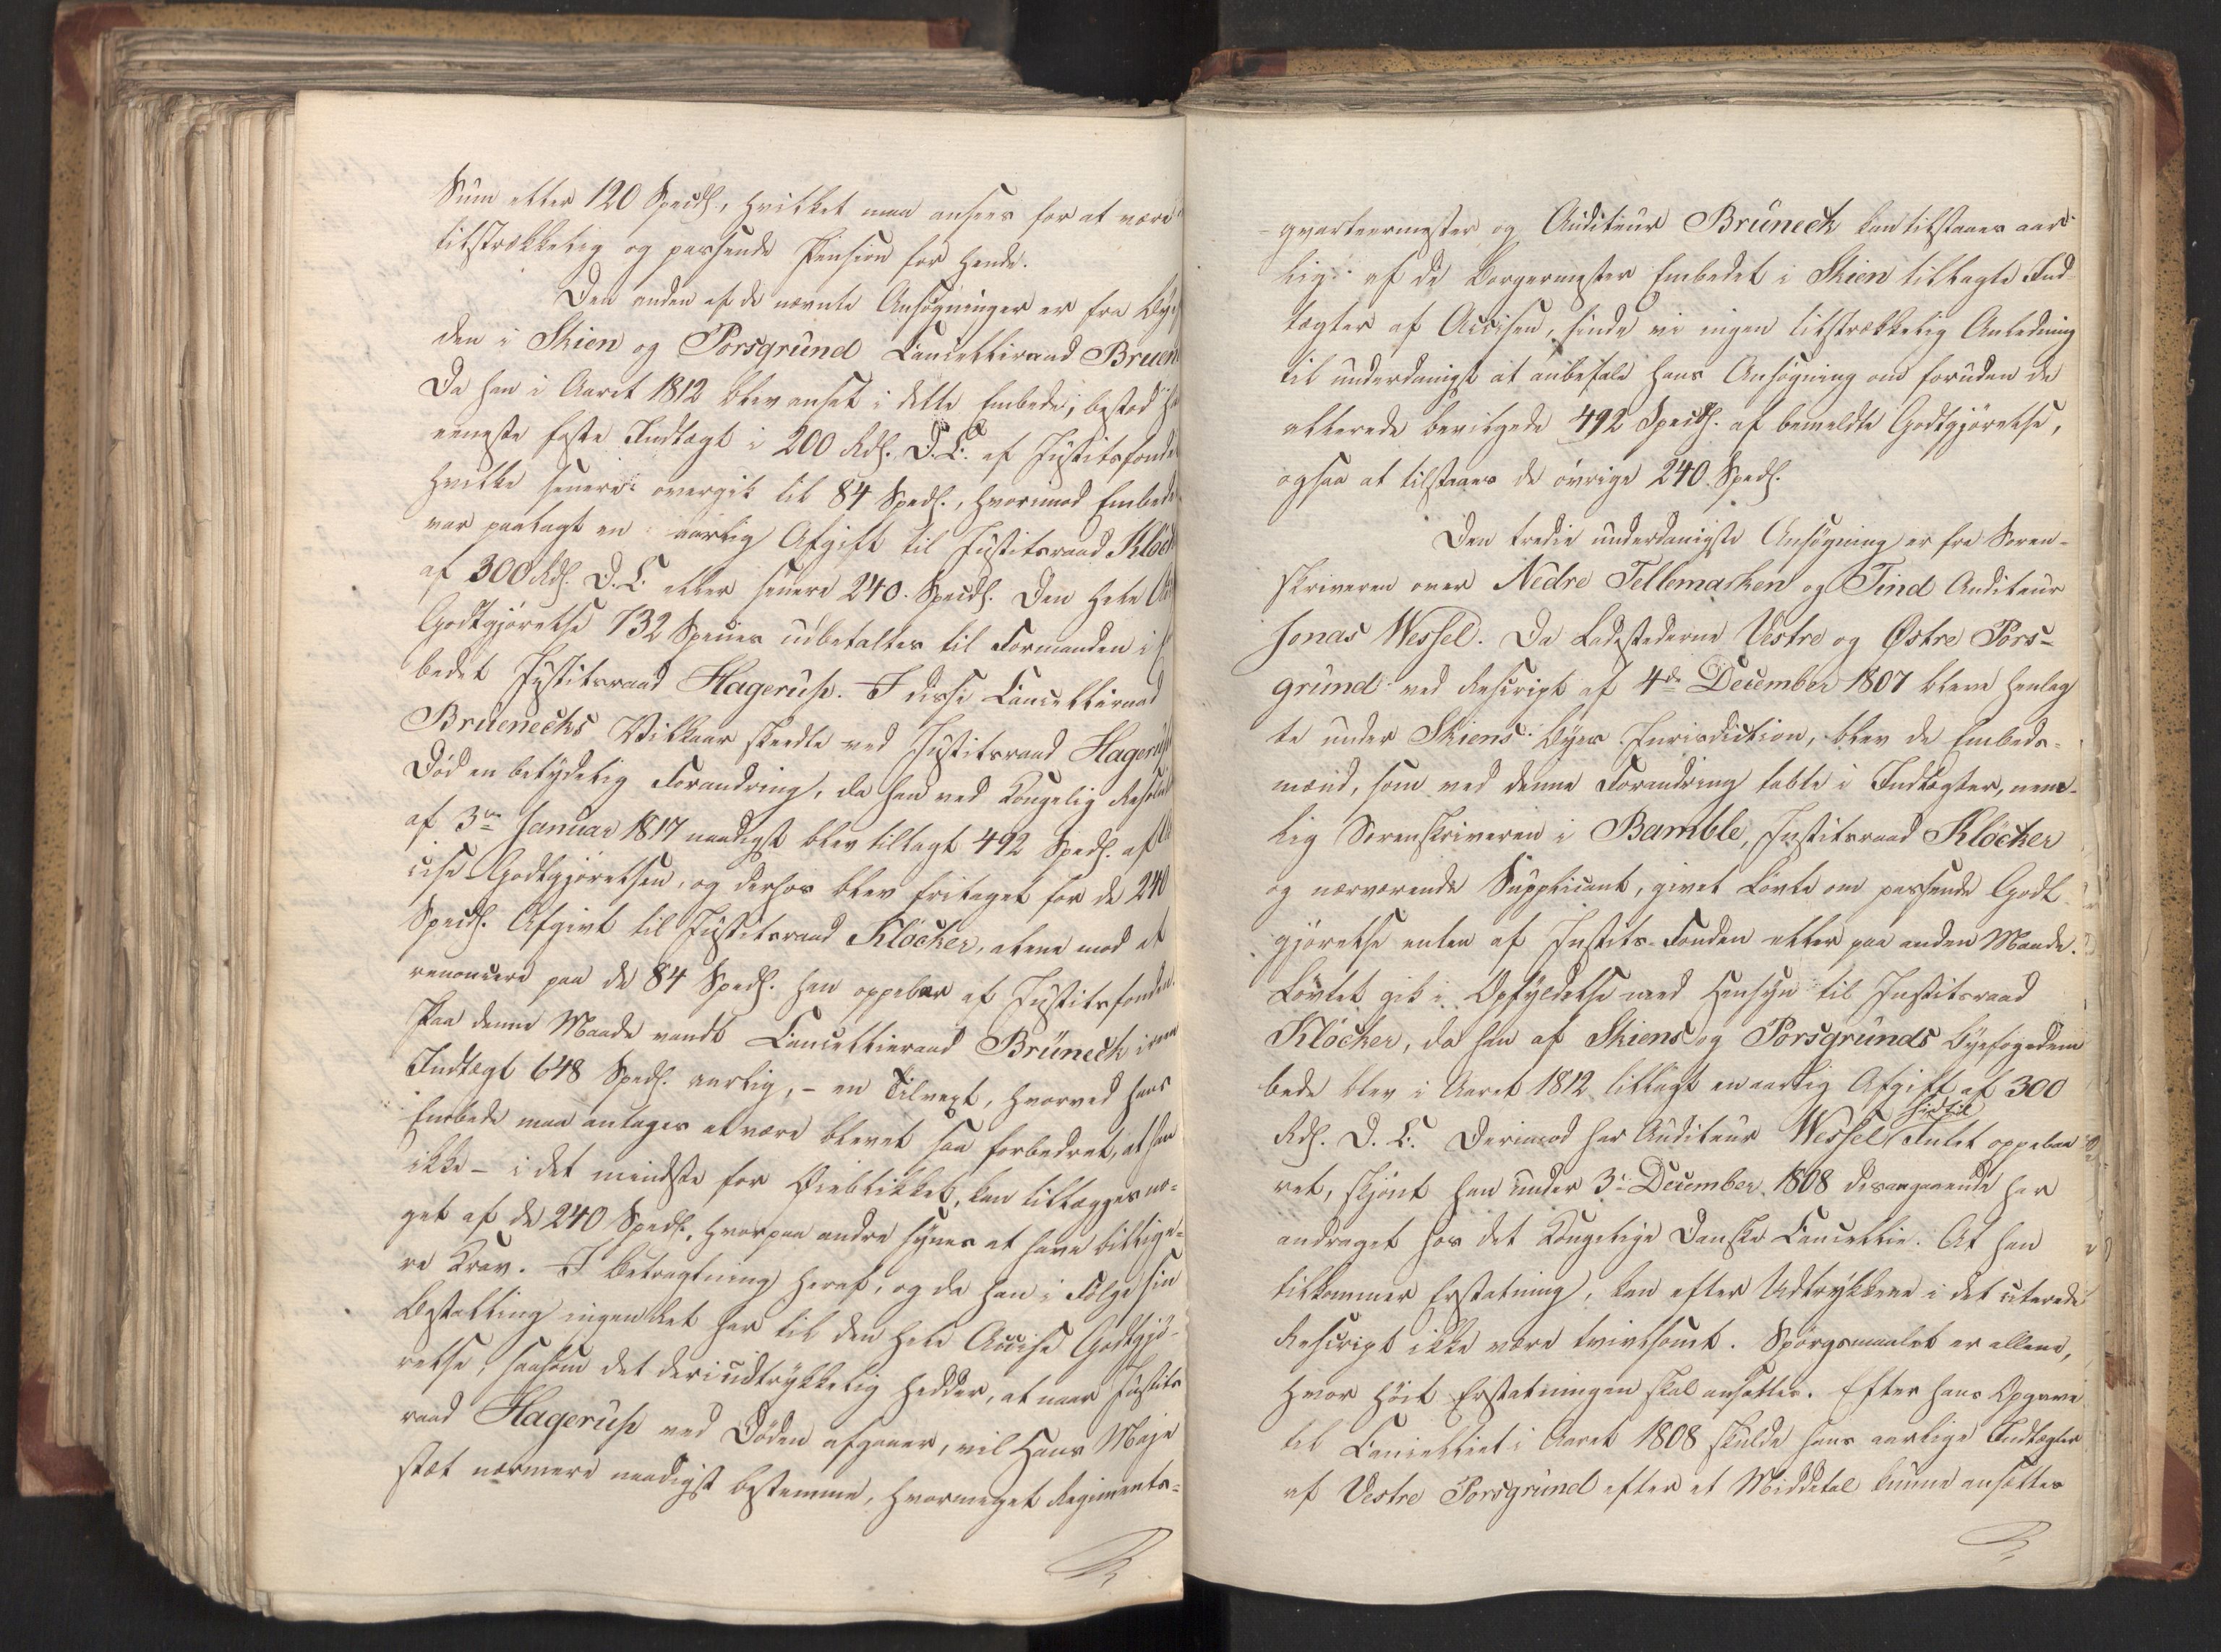 Sum eller 120 Specdlr., hvilket maa ansees for at være
tilstrækkelig og passende Pension for hende.
Den anden af de nævnte Ansøgninger er fra Bye
den i Skien og Porsgrund Cancelliraad Bruen
Da han i Aaret 1812 blev ansat i dette Embede, bestod
eeneste faste Indtægt i 200 Rdlr. D.C. af Justitsfonde
hvilke senere overgik til 84 Spcdlr., hvorimod Embede
var paalagt en aarlig Afgift til Justitsraad Klöck
af 300 Rdlr. D.C. eller senere 240 Specdlr. Den hele
Godtgjørelse 732 Species udbetaltes til Formanden i
bedet Justitsraad Hagerup. I disse Cancelliraad
Bruenechs Vilkaar skeedte ved Justitsraad Hagerup
Død en betydelig Forandring, da han ved Kongelig Resolut
af 3die Januar 1817 naadigst blev tillagt 492 Spcdlr. af
cise Godtgjørelsen, og derhos blev fritaget for de 240
Specdlr. Afgivt til Justitsraad Klöcker, alene mod at
renoncere paa de 84 Spcdlr. han oppebar af Justitsfonden.
Paa denne Maade vandt Cancellieraad Brüneck i
Indtægt 648 Spcdlr. aarlig, - en Tilvext, hvorved hans
Embede maa antages at være blevet saa forbedret, at han
ikke - i det mindste for Øieblikket, kan tillægges no-
get af de 240 Spcdlr., hvorpaa andre synes at have billige-
re Krav. I Betragtning heraf, og da han i Følge sin
Bestalling ingen Ret har til den hele Accise Godtgjö-
relse, saasom det deri udtrykkelig hedder, at naar Justits
raad Hagerup ved Døden afgaaer, vil Hans Maje
stæt nærmere naadigst bestemme, hvormeget Regiments-
qvarteermester og Auditeur Brüneck kan tilstaaes aar-
lig af de Borgermester Embedet i Skien tillagte Ind-
tægter af Accisen, finde vi ingen tilstrækkelig Anledning
til underdanigst at anbefale hans Ansøgning om foruden de
allerede bevilgede 492 Specdlr. af bemeldte Godtgjørelse,
ogsaa at tilstaaes de øvrige 240 Spcdlr.
Den tredie underdanigste Ansøgning er fra Soren-
skriveren over Nedre Tellemarken og Tind Auditeur
Jonas Wessel. Da Ladestederne Vestre og Østre Pors-
grund ved Rescript af 4de December 1807 bleve henlag
te under Skiens Byes Jurisdiction, blev de Embeds-
mænd, som ved denne Forandring tabte i Indtægter, nem-
lig Sorenskriveren i Bamble, Justitsraad Klöcker
og nærværende Supplicant, givet Løvte om passende Godt
gjørelse enten af Justits-Fonden eller paa anden Maade.
Løvtet gik i Opfyldelse med Hensyn til Justitsraad
Klöcker, da han af Skiens og Porsgrunds Byefogedem
bede blev i Aaret 1812 tillagt en aarlig Afgift af 300
Rdlr. D.C. Derimod har Auditeur Wessel hidtil Intet oppebaa
ret, skjönt han under 3die December 1808 desangaaende har
andraget hos det Kongelige Danske Cancellie. At han
tilkommer Erstatning, kan efter Udtrykkene i det citerede
Rescript ikke være tvivlsomt. Spörgsmaalet er allene,
hvor höit Erstatningen skal ansættes. Efter hans Opgave
til Cancelliet i Aaret 1808 skulde hans aarlige Indtægter
af Vestre Porsgrund efter et Middeltal kunne ansættes